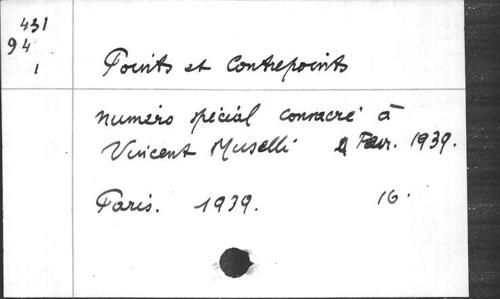 431
94
1
Points et Contrepoints
numéro spécial consacré à
Vincent Muselli 2 Fevr. 1939.
Paris. 1939. 16.